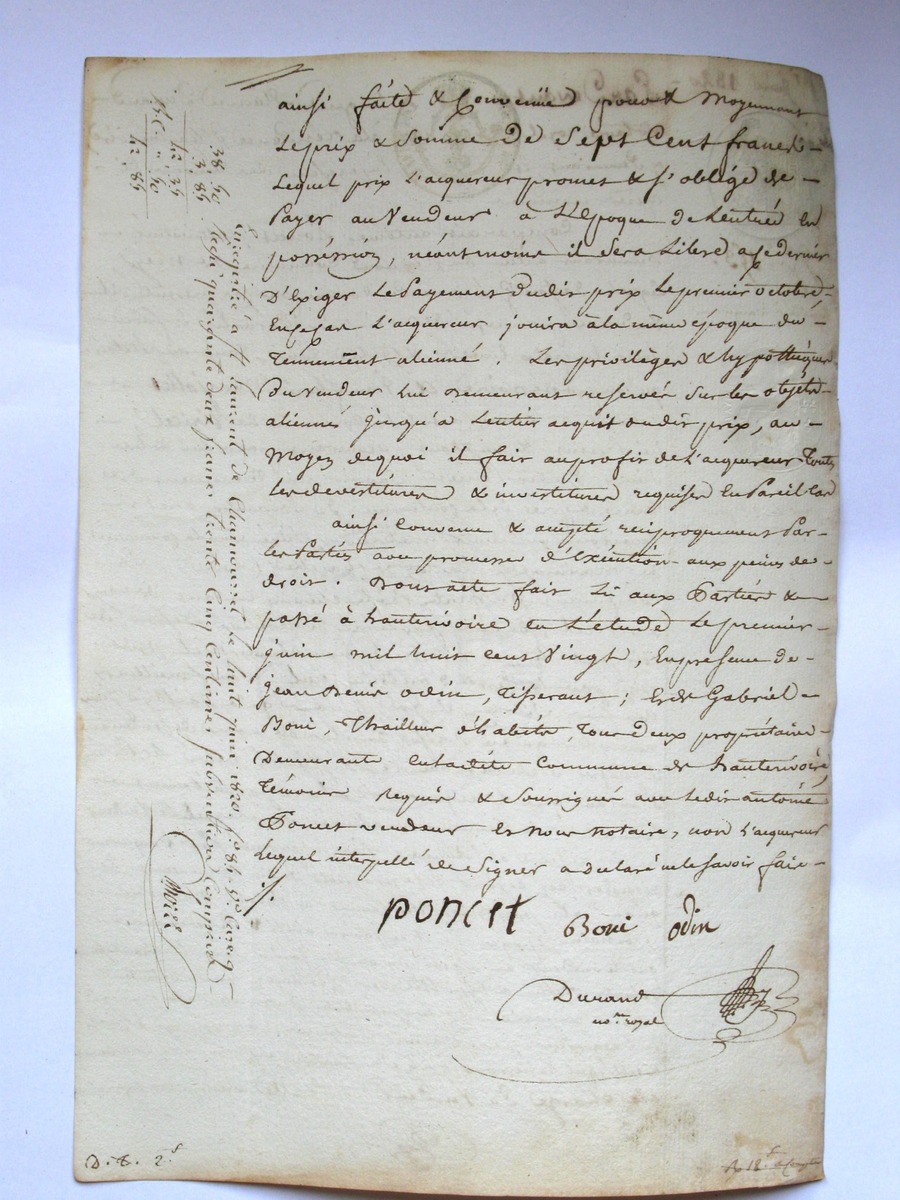 ainsi faite & Convenüe pour & Moyennant
Le prix & Somme De Sept Cent francs -
Lequel prix L'acquereur promet & s'oblige de -
Payer au Vendeur à L'Epoque de Lentrée En
possession, néantmoins il Sera Libre a Ce dernier
D'Exiger Le Payement dudit prix Le premier octobre,
L'acquereur jouira à la même époque du -
Tennement alienné. Les privilèges & hypothèques
Du Vendeur lui Demeurant reservés Sur les objets
aliennés jusqu'a Lentier acquit dudit prix, au -
Moyen de quoi il fait au profit de L'acquereur Toutes
Les devestitures & investitures requises En Pareil Cas
ainsi Convenu & accepté réciproquement Par -
Les Parties avec promesse d'Exécution aux peines de -
droit. Dont acte fait Lu aux Parties & -
passé à hauterivoire En L'étude Le premier -
juin mil huit cent Vingt, En présence de -
jean Denis odin, Tisserant ; Et de Gabriel -
Boni, Thailleur d'habits, Tous Deux propriétaires
Demeurants En Ladite Commune de hauterivoire,
Témoins Requis & Soussignés avec Ledit antoine
Poncet vendeur Et Nous Notaire, non L'acquereur
Lequel interpellé de Signer a Déclaré ne le Savoir faire -
poncet Boni odin
Durand
no.re royal
Enregistré à St Laurent de Chamousset Le huit juin 1820. fo. 86 Vo. Care 9
reçu quarante deux francs trente Cinq Centimes Subvention Comprise
38, 50
3, 85
42, 35
42, 85
D. E. 2.f